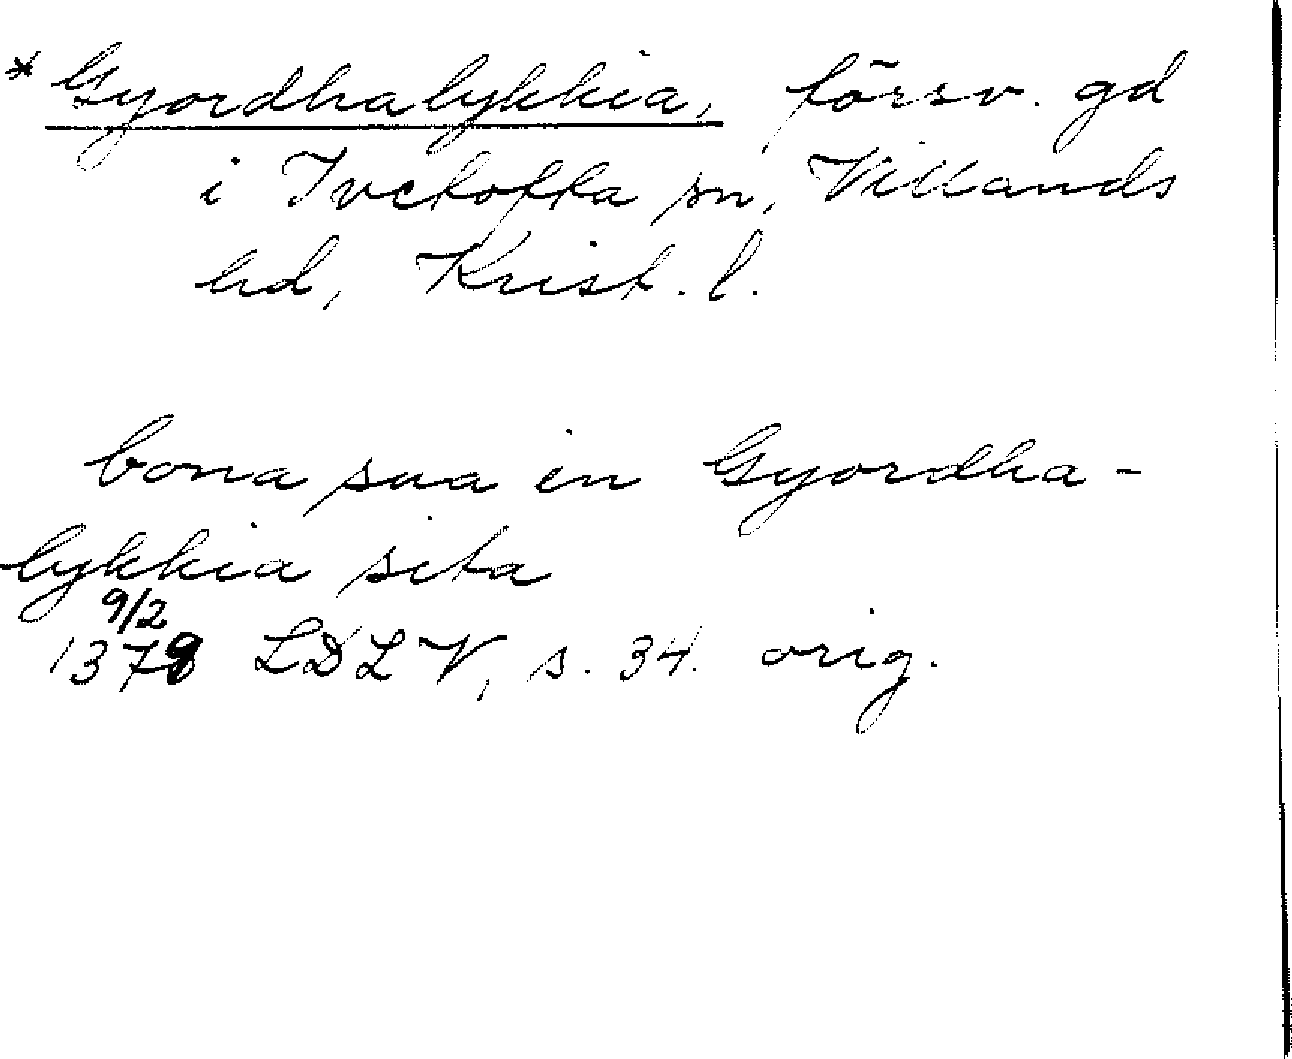 * Gyordhalykkia, försv. gd
i Ivetofta sn, Villands
hd, Krist. l.
bona sua in Gyordha-
lykkia sita
9/2
1378 LDLV, s. 34. orig.